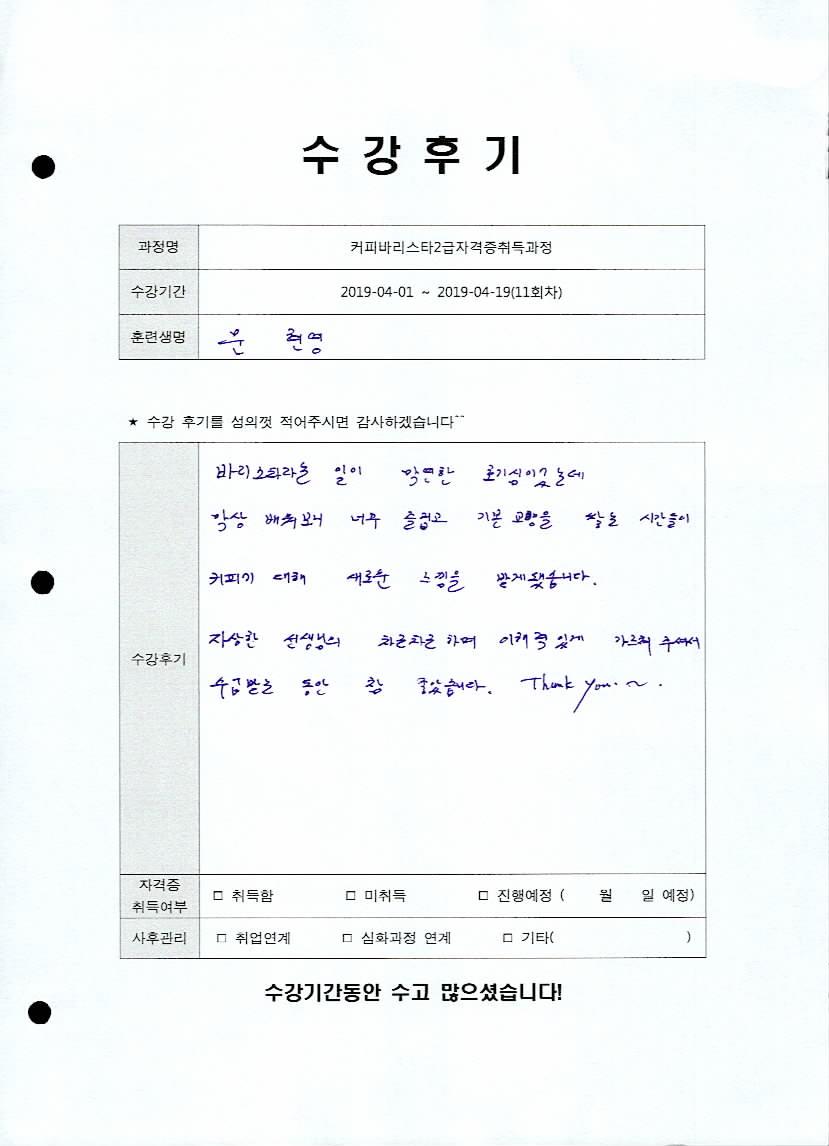 수 강 후 기
과정명 커피바리스타2급자격증취득과정
수강기간 2019-04-01 ~ 2019-04-19(11회차)
훈련생명 문 련영
★ 수강 후기를 성의껏 적어주시면 감사하겠습니다^^
수강후기
바리스타라는 일이 막연한 호기심이였는데
막상 배워보니 너무 즐겁고 기본 교양을 쌓는 시간들이
커피가 대해 새로운 느낌을 받게됐습니다.
자상한 선생님의 차근차근 하며 이해력 있게 가르쳐 주셔서
수업받는 동안 참 좋았습니다. Thank you.~.
자격증 취득여부 □ 취득함 □ 미취득 □ 진행예정 ( 월 일 예정)
사후관리 □ 취업연계 □ 심화과정 연계 □ 기타( )
수강기간동안 수고 많으셨습니다!